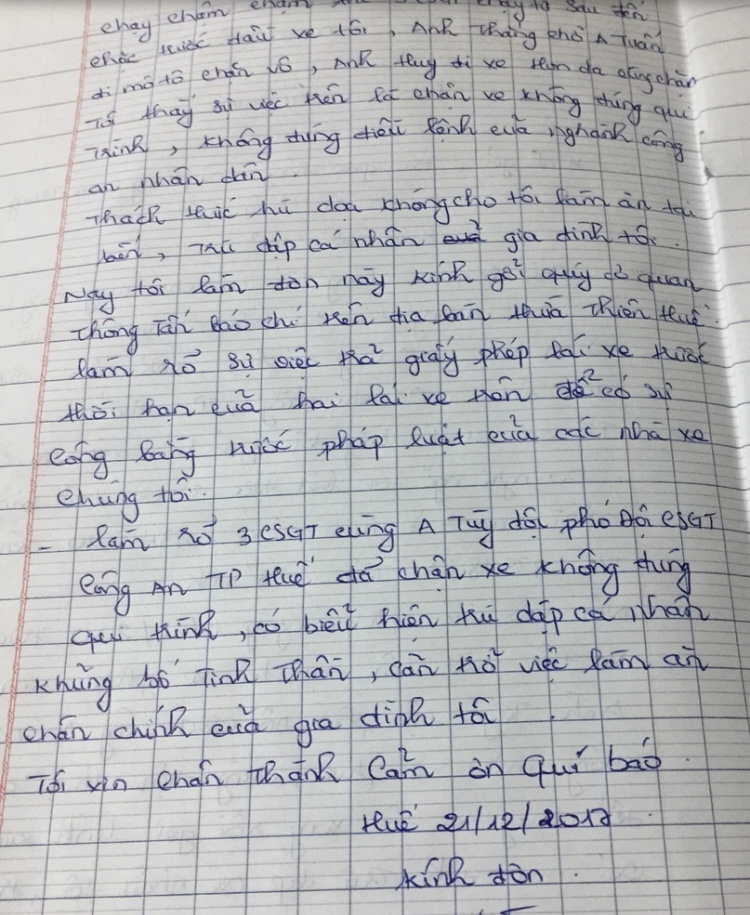 chạy chầm chậm
chốc trước đầu xe tôi, Anh Thắng chở A Tuấn
đi mô tô chặn vô, Anh Huy đi xe Hon da cũng chặn
Tôi thấy sự việc trên là chặn xe không đúng qui
Trình, không đúng điều lệnh của nghành công
an nhân dân
Thách thức hù doạ không cho tôi làm ăn tại
bến, Trù dập cá nhân gia đình tôi.
Nay tôi làm đơn này kính gởi quý cơ quan
Thông Tấn báo chí trên địa bàn thừa Thiên Huế.
làm rỏ sự việc trả giấy phép lái xe trước
thời hạn của hai lái xe trên để có sự
công bằng trước pháp luật của các nhà xe
chúng tôi.
- làm rỏ 3 CSGT cùng A Tuý đội phó Đội CSGT
Công An TP Huế đã chặn xe không đúng
qui trình, có biểu hiện trù dập cá nhân
khủng bố Tinh Thần, cản trở việc làm ăn
chân chính của gia đình tôi
Tôi xin chân Thành Cảm ơn Quí báo.
Huế 21/12/2017
Kính đơn.